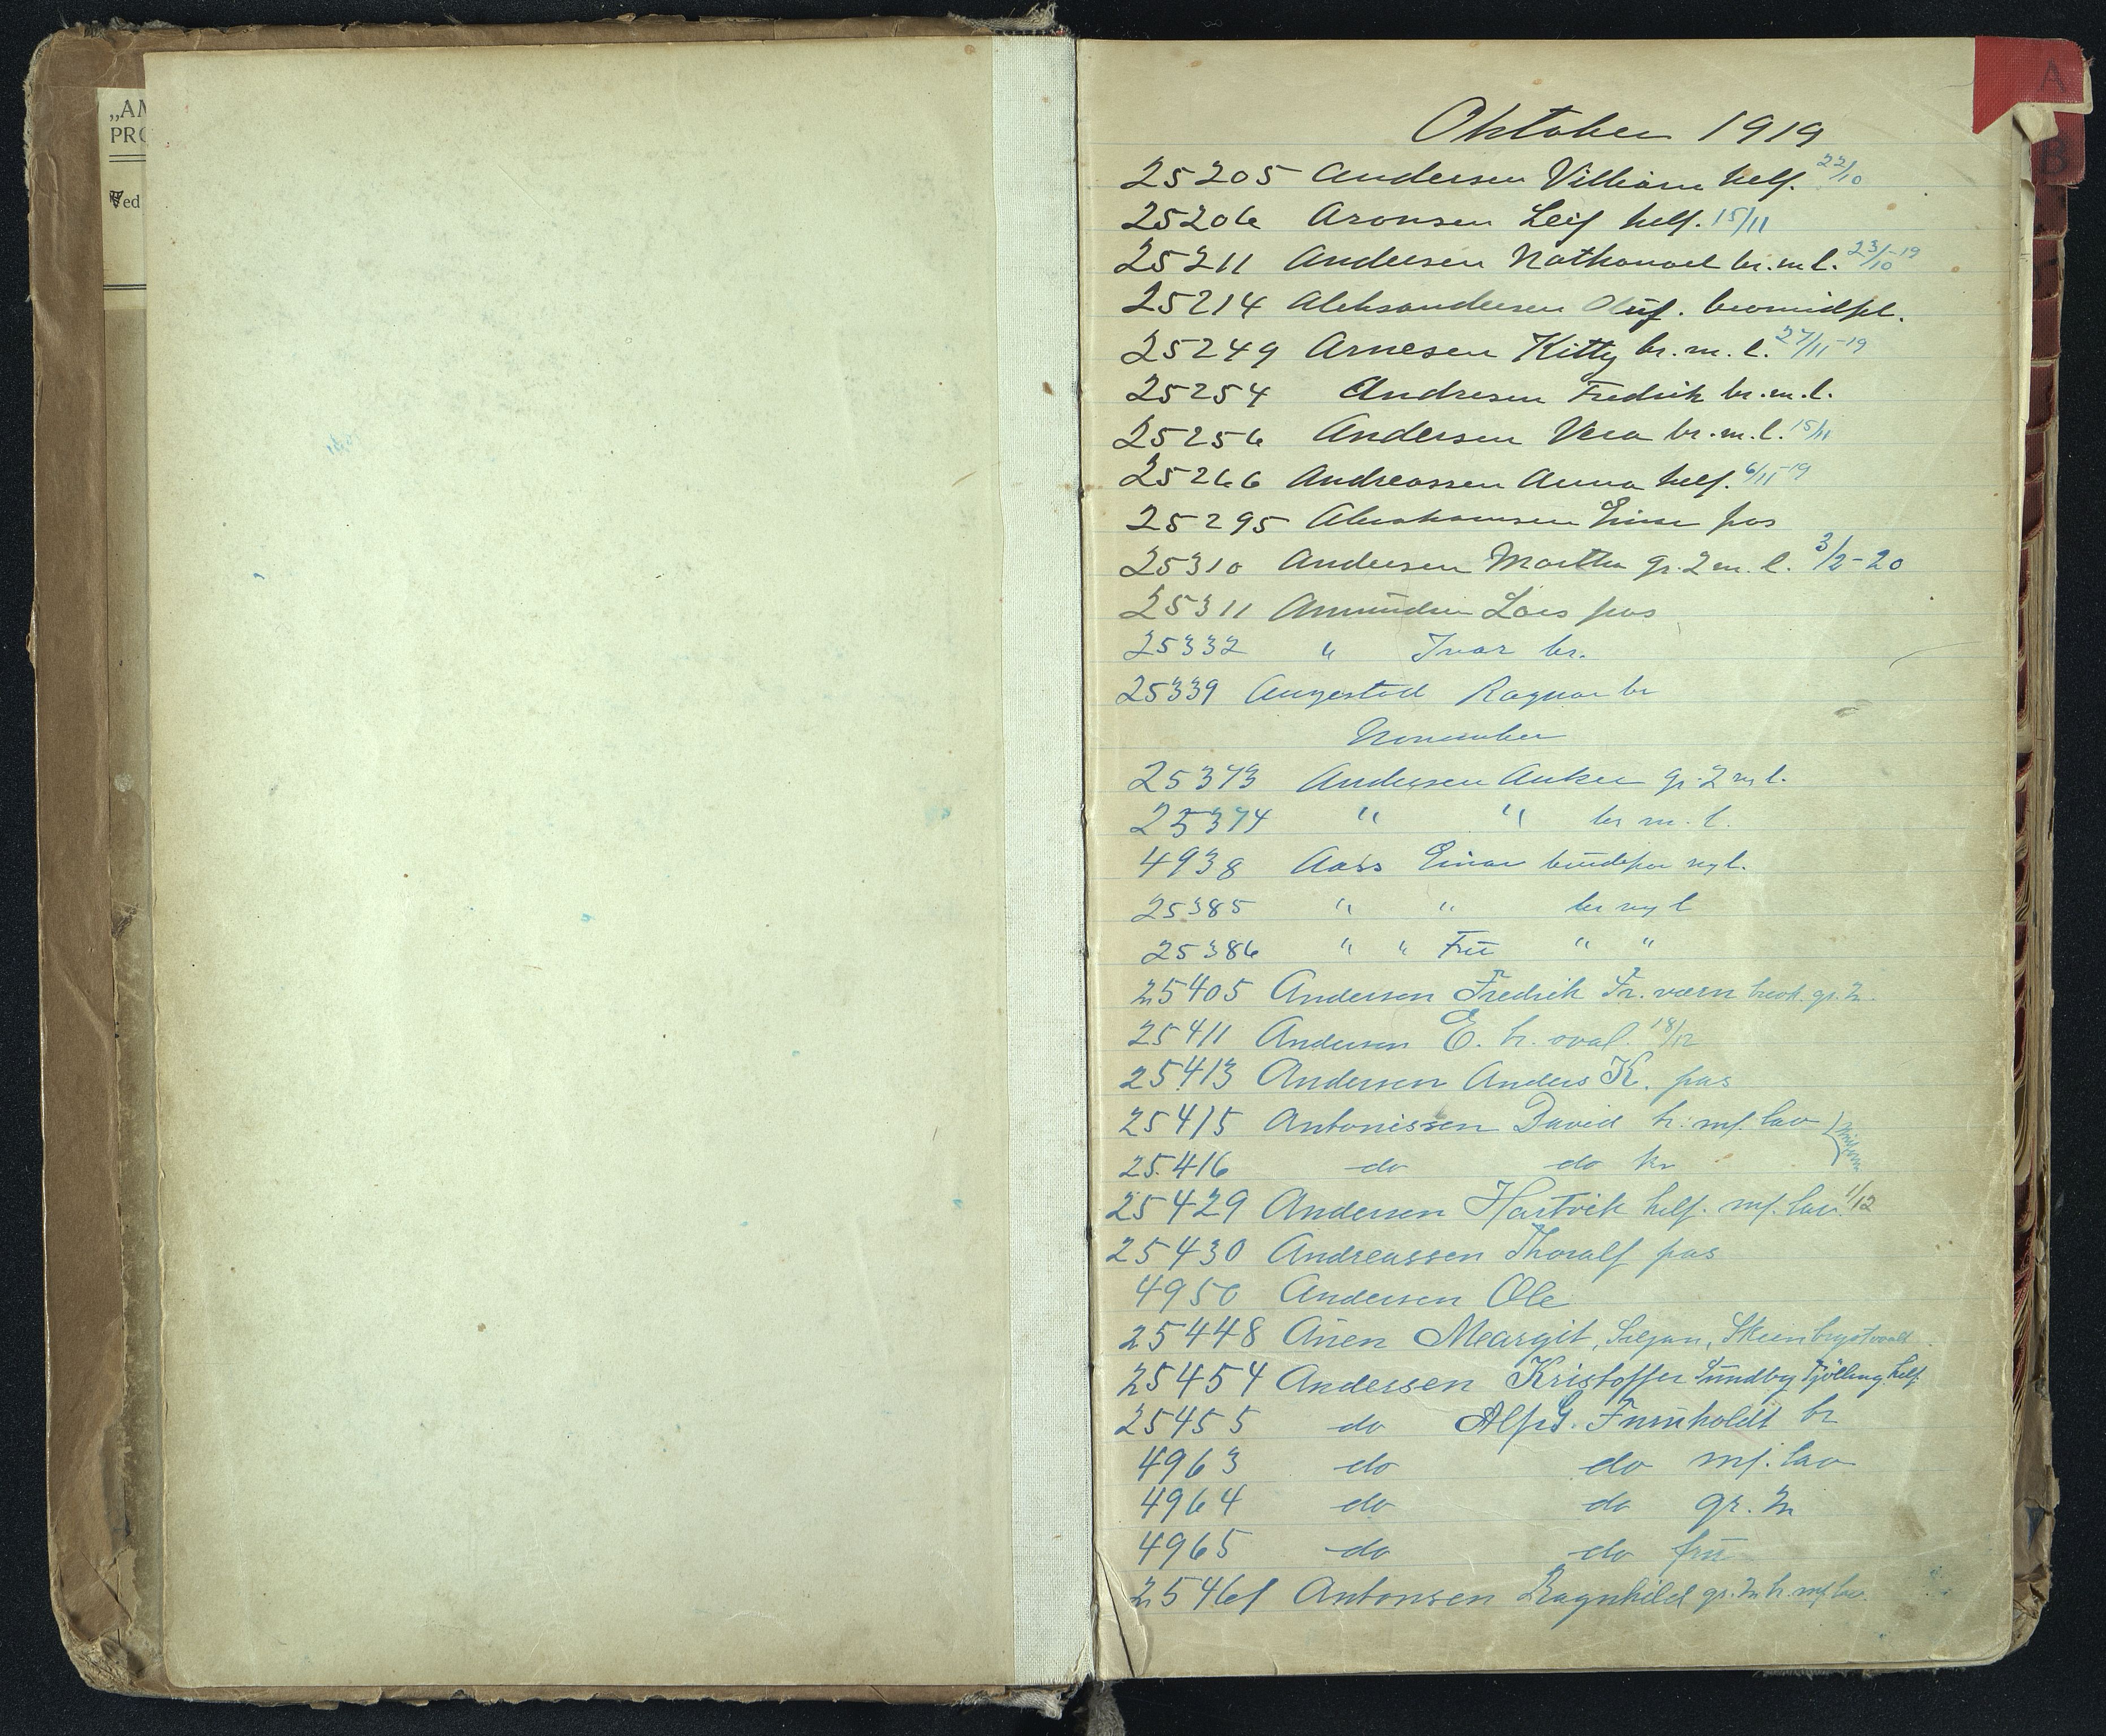 „AM
PRO
Ved
A
B
Oktober 1919
25205 Andersen Villiam helf. 22/10
25206 Aronsen Leif helf. 15/11
25211 Andersen Nathanael br. m l. 23/10-19
25214 Aleksandersen Oluf. bromidfel.
25249 Arnesen Kitty br. m. l. 27/11-19
25254 Andresen Fredrik br. m. l.
25256 Andersen Vera br. m. l. 15/11
25266 Andreassen Anna helf. 6/11-19
25295 Abrahamsen Einar pas
25310 Andersen Martha gr. 2 m. l. 3/2-20
25311 Amundsen Lars pas
25332 " Ivar br.
25339 Augestad Ragnar br
November
25373 Andersen Anker gr. 2 m l.
25374 " " br m. l.
4938 Aass Einar m l.
25385 " " br m l
25386 " " Frü " "
25405 Andersen Fredrik Fr.værn gr. 2.
25411 Andersen E. br. oval. 18/12
25413 Andersen Anders K. pas
25415 Antonissen David br. mf. lav
25416 do do kn
25429 Andersen Hartvik helf. mf. lav. 1/12
25430 Andreassen Thoralf pas
4950 Andersen Ole
25448 Aüen Meargit, Siljan, Skien bryst oval
25454 Andersen Kristoffer Sündby Tjölling helf
25455 do Alf G. br
4963 do do mf. lav
4964 do do gr. 2
4965 do do frü
25461 Antonsen Ragnhild gr. 2 br. mf lav.